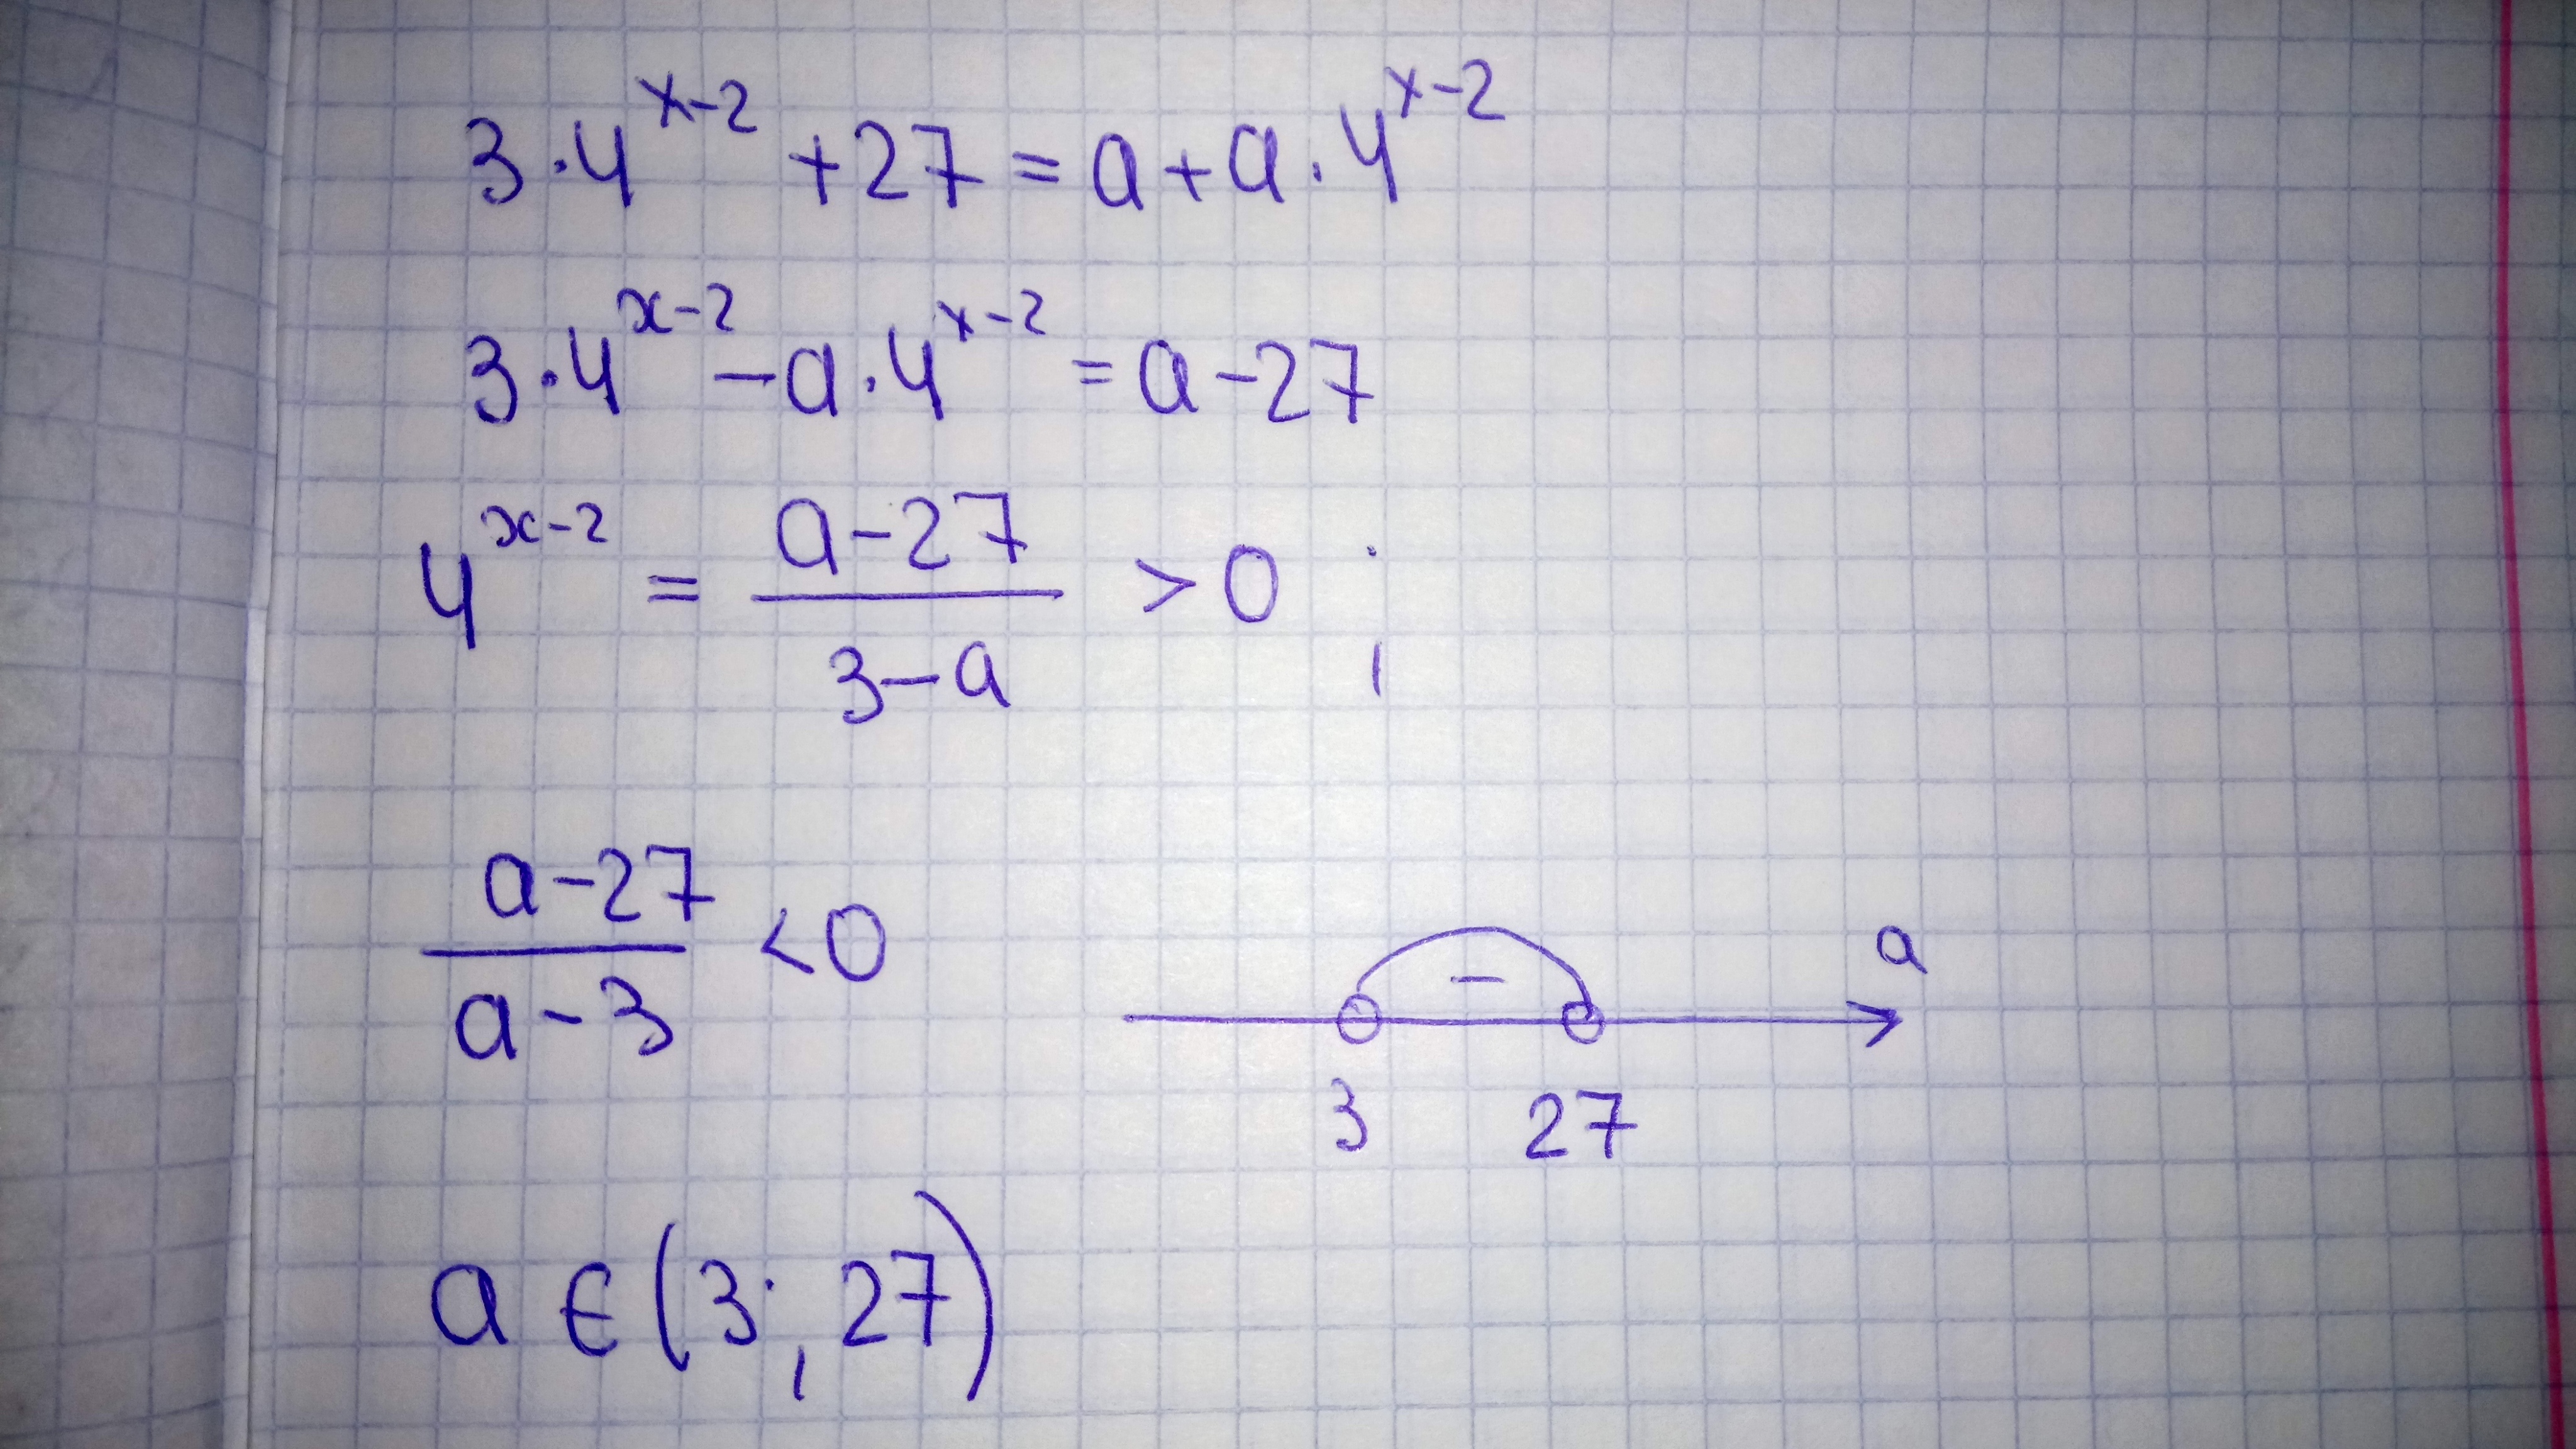 3·4^{x-2} + 27 = a + a·4^{x-2}
3·4^{x-2} - a·4^{x-2} = a - 27
4^{x-2} = \frac{a-27}{3-a} > 0 ;
\frac{a-27}{a-3} < 0
a
−
3 27
a ∈ (3; 27)